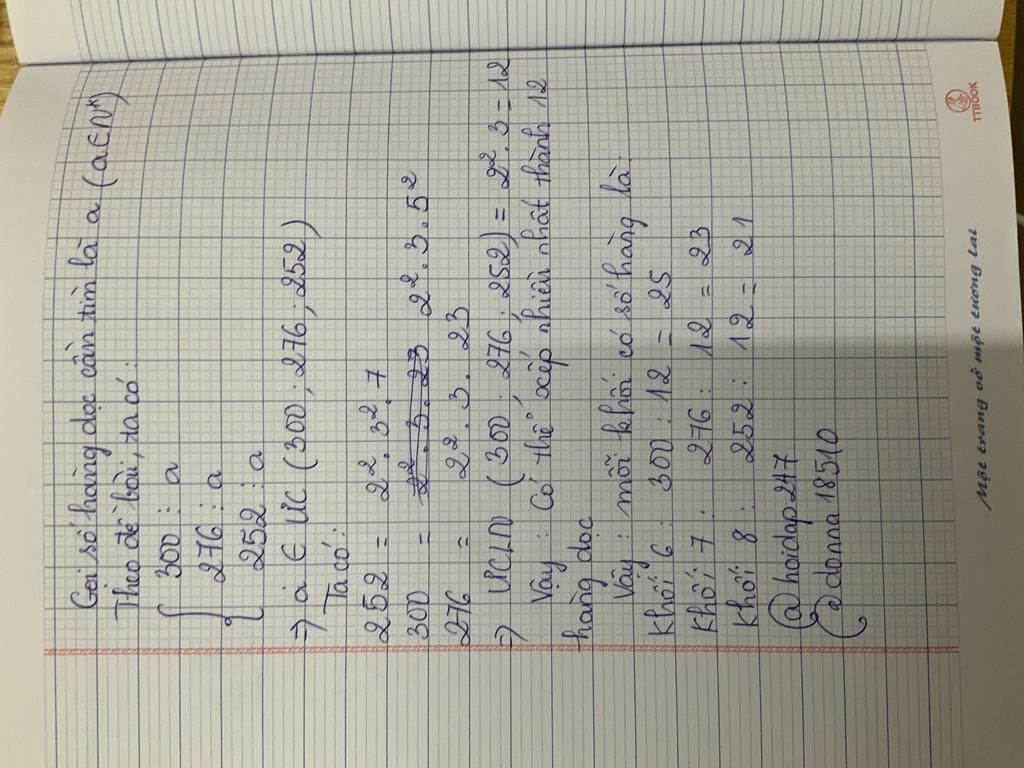 Gọi số hàng dọc cần tìm là a (a∈N*)
Theo đề bài, ta có:
300 ⋮ a
276 ⋮ a
252 ⋮ a
=> a ∈ ƯC (300; 276; 252)
Ta có:
252 = 2². 3². 7
300 = 2². 3. 23 2². 3. 5²
276 = 2². 3. 23
=> ƯCLN (300; 276; 252) = 2². 3 = 12
Vậy: Có thể xếp nhiều nhất thành 12
hàng dọc
Vậy: mỗi khối có số hàng là:
Khối 6: 300 : 12 = 25
Khối 7: 276 : 12 = 23
Khối 8: 252 : 12 = 21
@hoidap247
@donna18510
Một trang vở một tương lai
TTBOOK